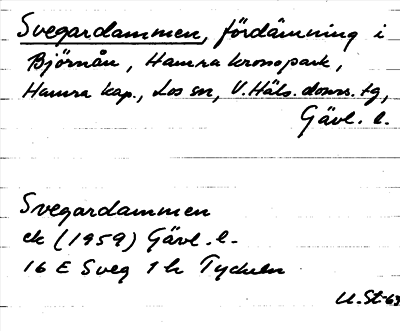 Svegardammen, fördämning i
Björnån, Hamra kronopark,
Hamra kap., Los sn, V. Häls. doms. tg,
Gävl. l.
Svegardammen
ek (1959) Gävl. l.
16 E Sveg 1 h Tyckeln
U.St-63